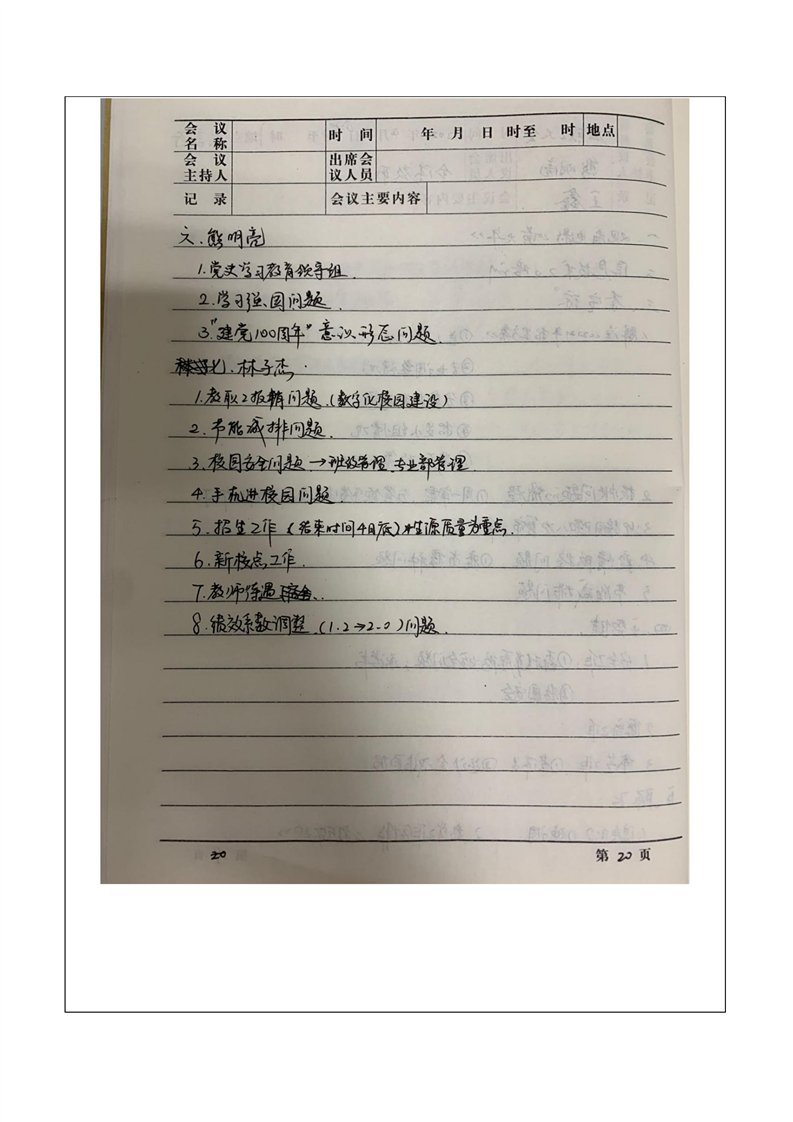 会议名称 时间 年 月 日 时至 时 地点
会议主持人 出席会议人员
记录 会议主要内容
六、熊明亮
1.党史学习教育领导组.
2.学习强国问题.
3."建党100周年"意识形态问题.
七、林子杰.
1.教职工报销问题.(数字化校园建设)
2.节能减排问题.
3.校园安全问题→班级管理、专业部管理
4.手机进校园问题.
5.招生工作(结束时间4月底)生源质量为重点.
6.新校点工作.
7.教师待遇
8.绩效系数调整(1.2→2.0)问题.
20 第 20 页